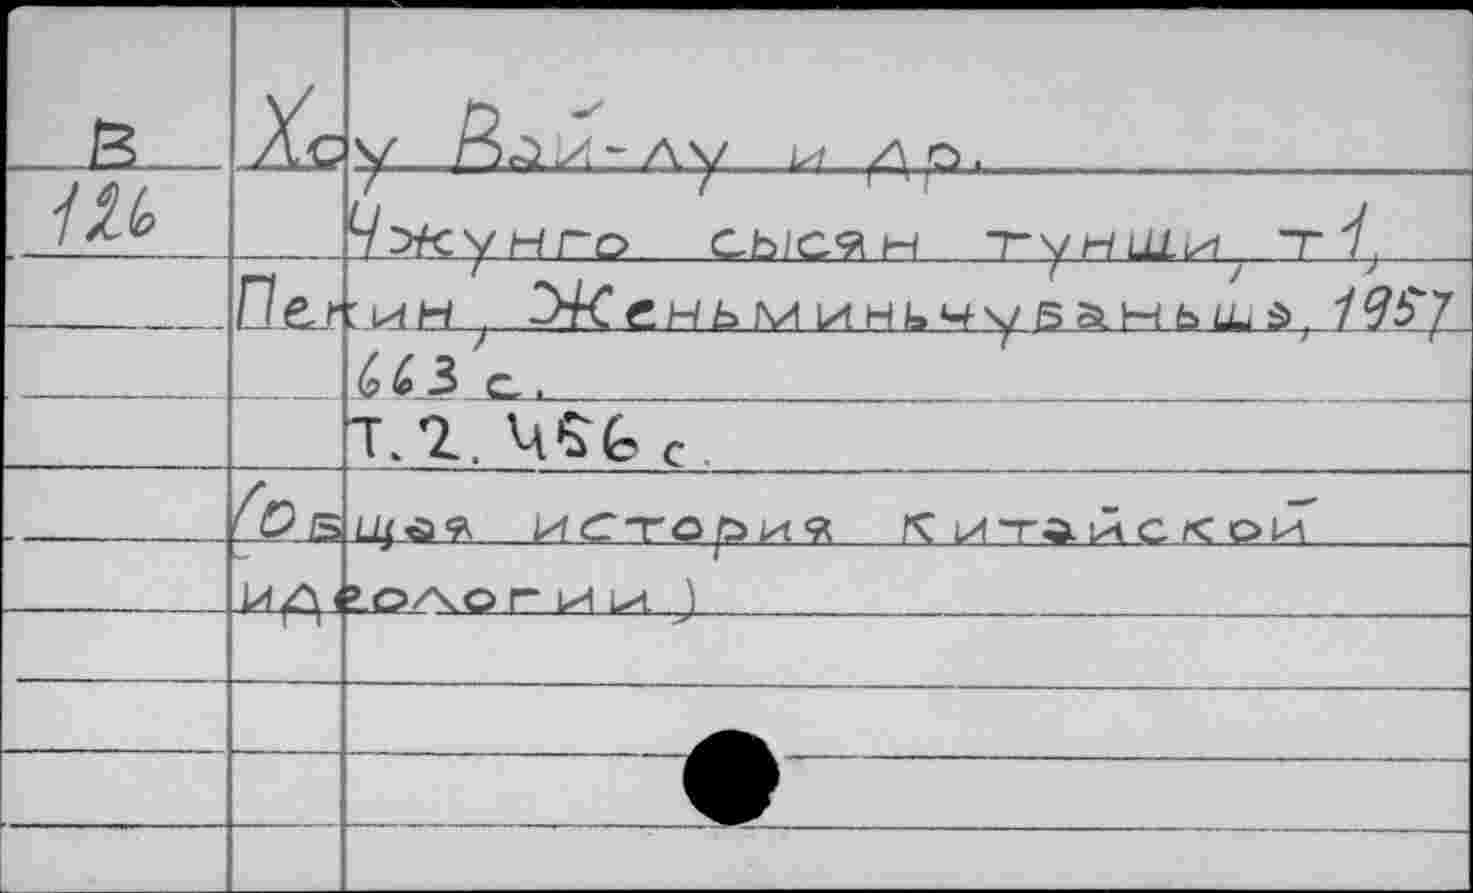 В Хоу Вай-лу и др.
126 Чжунго сысян тунши, т 1,
Пекин, Женьминьчубаньшэ, 1957
663 с.
Т. 2. 456 с.
(Общая история китайской
идеологии)